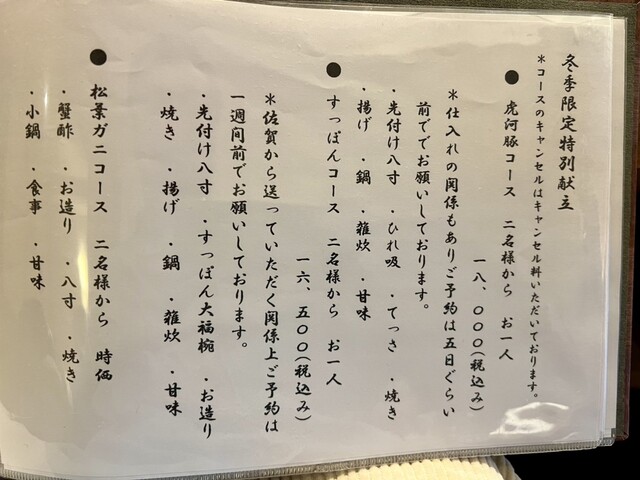 冬季限定特別献立
＊コースのキャンセルはキャンセル料いただいております。
● 虎河豚コース 二名様から お一人
一八、〇〇〇(税込み)
＊仕入れの関係もありご予約は五日ぐらい
前までお願いしております。
・先付け八寸 ・ひれ吸 ・てっさ ・焼き
・揚げ ・鍋 ・雑炊 ・甘味
● すっぽんコース 二名様から お一人
一六、五〇〇(税込み)
＊佐賀から送っていただく関係上ご予約は
一週間前でお願いしております。
・先付け八寸 ・すっぽん大福椀 ・お造り
・焼き ・揚げ ・鍋 ・雑炊 ・甘味
● 松葉ガニコース 二名様から 時価
・蟹酢 ・お造り ・八寸 ・焼き
・小鍋 ・食事 ・甘味